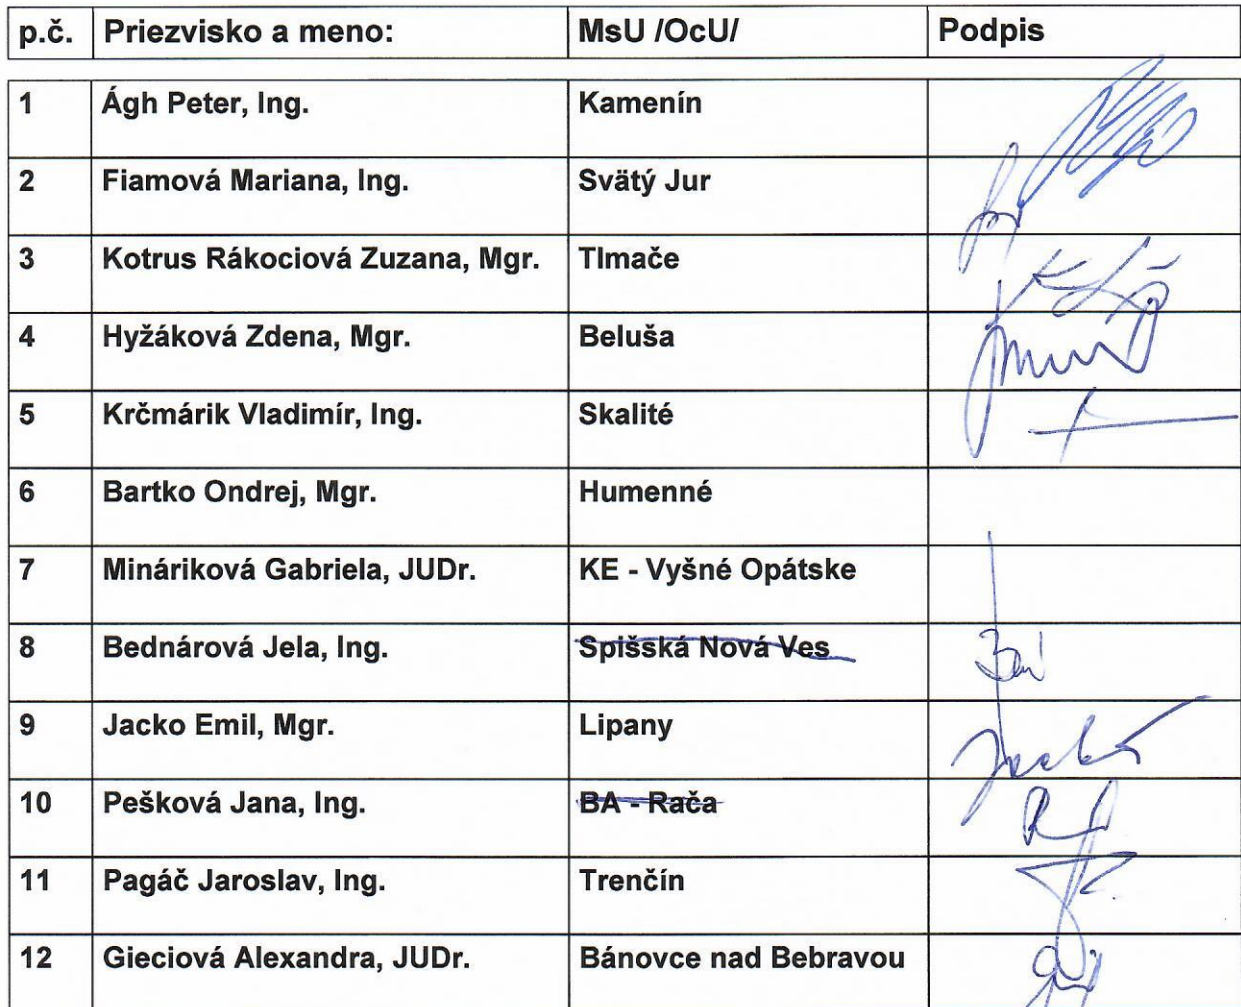 p.č. Priezvisko a meno: MsU /OcU/ Podpis
1 Ágh Peter, Ing. Kamenín
2 Fiamová Mariana, Ing. Svätý Jur
3 Kotrus Rákociová Zuzana, Mgr. Tlmače
4 Hyžáková Zdena, Mgr. Beluša
5 Krčmárik Vladimír, Ing. Skalité
6 Bartko Ondrej, Mgr. Humenné
7 Mináriková Gabriela, JUDr. KE - Vyšné Opátske
8 Bednárová Jela, Ing. Spišská Nová Ves
9 Jacko Emil, Mgr. Lipany
10 Pešková Jana, Ing. BA - Rača
11 Pagáč Jaroslav, Ing. Trenčín
12 Gieciová Alexandra, JUDr. Bánovce nad Bebravou